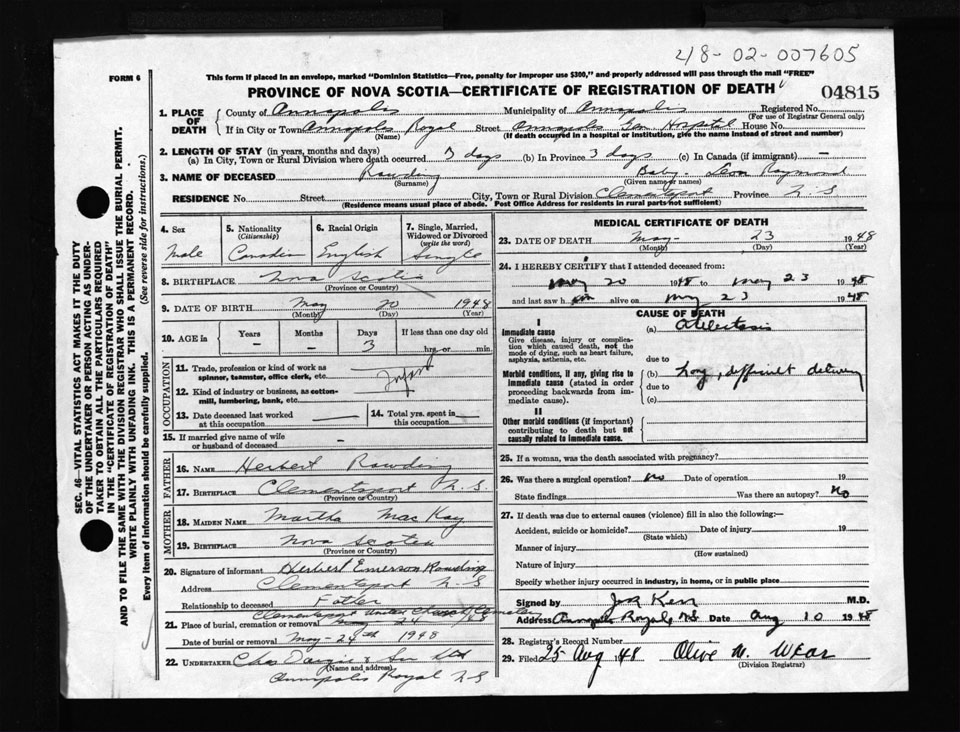 48-02-007605
FORM 6
This form if placed in an envelope, marked "Dominion Statistics—Free, penalty for improper use $300," and properly addressed will pass through the mail "FREE"
PROVINCE OF NOVA SCOTIA—CERTIFICATE OF REGISTRATION OF DEATH
04815
1. PLACE OF DEATH
County of Annapolis Municipality of Annapolis Registered No.
(For use of Registrar General only)
If in City or Town Annapolis Royal Street Annapolis Gen. Hospital House No.
(Name) (If death occurred in a hospital or institution, give the name instead of street and number)
2. LENGTH OF STAY (in years, months and days)
(a) In City, Town or Rural Division where death occurred 3 days (b) In Province 3 days (c) In Canada (if immigrant) —
3. NAME OF DECEASED Rawding Baby- Leon Raymond
(Surname) (Given name or names)
RESIDENCE No. Street City, Town or Rural Division Clementsport Province N.S
(Residence means usual place of abode. Post Office Address for residents in rural parts not sufficient)
4. Sex
Male
5. Nationality
(Citizenship)
Canadian
6. Racial Origin
English
7. Single, Married, Widowed or Divorced
(write the word)
Single
8. BIRTHPLACE Nova Scotia
(Province or Country)
9. DATE OF BIRTH May 20 1948
(Month) (Day) (Year)
10. AGE in
Years Months Days If less than one day old
– – 3 hrs. or min.
OCCUPATION
11. Trade, profession or kind of work as spinner, teamster, office clerk, etc.
Infant
12. Kind of industry or business, as cotton-mill, lumbering, bank, etc.
13. Date deceased last worked at this occupation —
14. Total yrs. spent in this occupation —
15. If married give name of wife or husband of deceased –
FATHER
16. NAME Herbert Rawding
17. BIRTHPLACE Clementsport N.S.
(Province or Country)
MOTHER
18. MAIDEN NAME Martha MacKay
19. BIRTHPLACE Nova Scotia
(Province or Country)
20. Signature of informant Herbert Emerson Rawding
Address Clementsport N.S
Relationship to deceased Father
Clementsport United Church Cemetery
21. Place of burial, cremation or removal May 24 /48
Date of burial or removal May-24th 1948
22. UNDERTAKER & Son Ltd
(Name and address)
Annapolis Royal N.S
MEDICAL CERTIFICATE OF DEATH
23. DATE OF DEATH May- 23 1948
(Month) (Day) (Year)
24. I HEREBY CERTIFY that I attended deceased from:
May 20 1948 to May 23 1948
and last saw h im alive on May 23 1948
CAUSE OF DEATH
I
Immediate cause (a) Atelectasis
Give disease, injury or complication which caused death, not the mode of dying, such as heart failure, asphyxia, asthenia, etc.
due to
Morbid conditions, if any, giving rise to immediate cause (stated in order proceeding backwards from immediate cause).
(b) Long, difficult delivery
due to
(c)
II
Other morbid conditions (if important) contributing to death but not causally related to immediate cause.
25. If a woman, was the death associated with pregnancy?
26. Was there a surgical operation? No Date of operation 19
State findings Was there an autopsy? No
27. If death was due to external causes (violence) fill in also the following:—
Accident, suicide or homicide? Date of injury 19
(State which)
Manner of injury
(How sustained)
Nature of injury
Specify whether injury occurred in industry, in home, or in public place
Signed by Kerr M.D.
Address Annapolis Royal, N.S. Date Aug 10 1948
28. Registrar's Record Number
29. Filed 25 Aug /48 Olive W. Wear
(Division Registrar)
SEC. 46—VITAL STATISTICS ACT MAKES IT THE DUTY
OF THE UNDERTAKER OR PERSON ACTING AS UNDERTAKER TO OBTAIN ALL THE PARTICULARS REQUIRED
IN THE "CERTIFICATE OF REGISTRATION OF DEATH"
AND TO FILE THE SAME WITH THE DIVISION REGISTRAR WHO SHALL ISSUE THE BURIAL PERMIT.
WRITE PLAINLY WITH UNFADING INK. THIS IS A PERMANENT RECORD.
Every item of information should be carefully supplied. (See reverse side for instructions.)